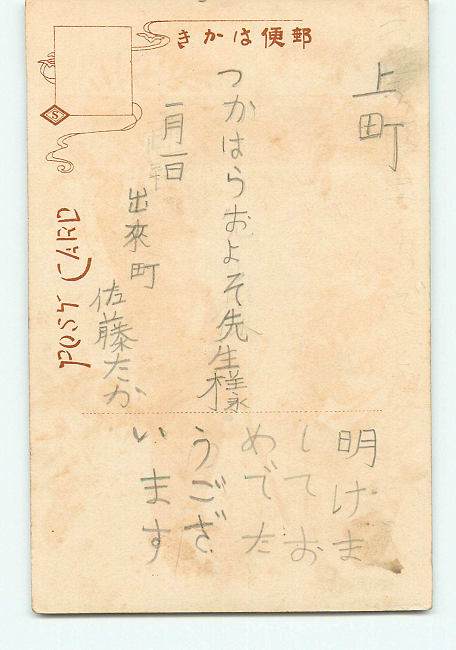 郵便はかき
上町
つかはらおよそ先生様
一月一日
出來町
佐藤たか
明けま
してお
めでた
うござ
います
POST CARD
S